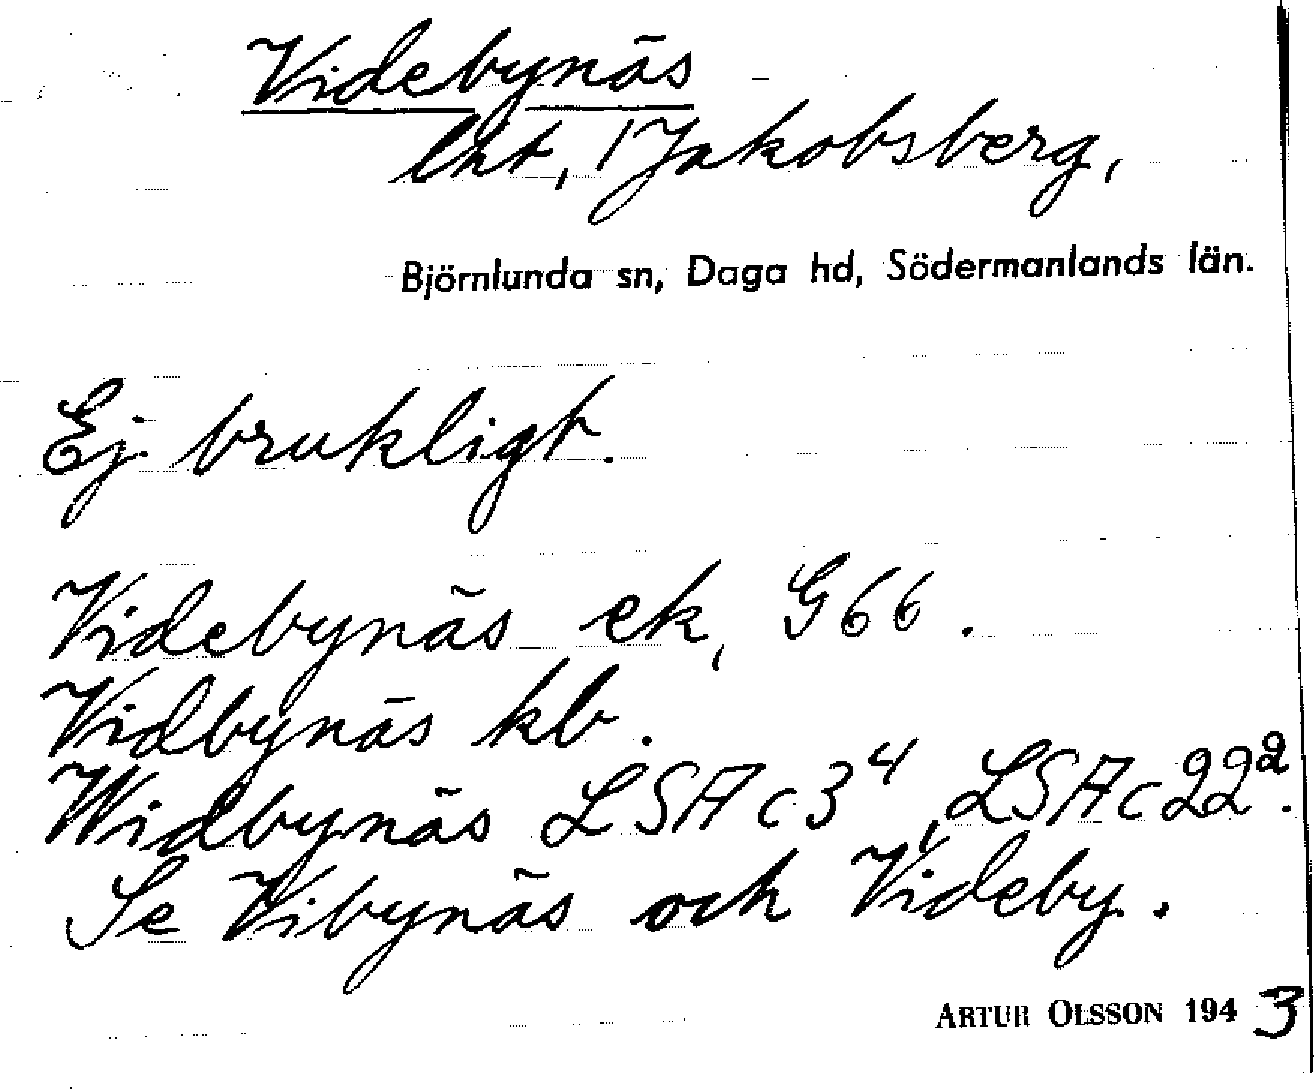 Videbynäs
lht, 1 Jakobsberg,
Björnlunda sn, Daga hd, Södermanlands län.
Ej brukligt.
Videbynäs ek, G66.
Vidbynäs kb.
Widbynäs LSA c3⁴, LSA c22².
Se Vibynäs och Videby.
ARTUR OLSSON 1943